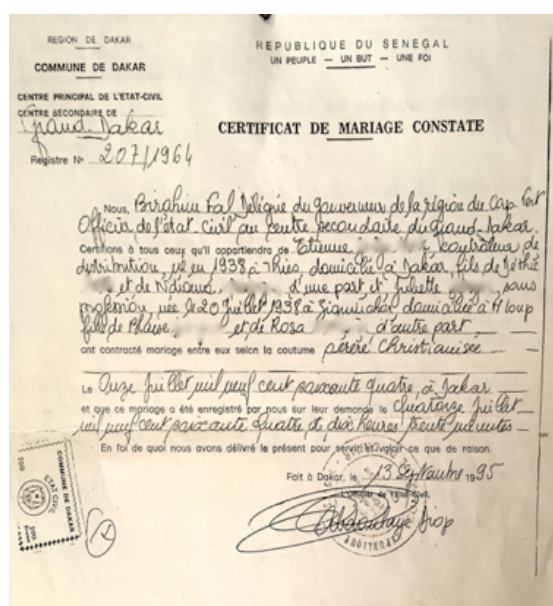 REGION DE DAKAR
COMMUNE DE DAKAR
CENTRE PRINCIPAL DE L'ETAT-CIVIL
CENTRE SECONDAIRE DE
Grand-Dakar
Registre Nº 207/1964
REPUBLIQUE DU SENEGAL
UN PEUPLE — UN BUT — UNE FOI
CERTIFICAT DE MARIAGE CONSTATE
Nous, Birahim Fal Délégué du gouverneur de la région du Cap Vert
Officier de l'état civil au centre secondaire du grand-Dakar
Certifions à tous ceux qu'il appartiendra de Etienne contrôleur de
distribution, né en 1938 à Thiès, domicilié à Dakar, fils de
et de d'une part et Juliette sans
profession, née le 20 juillet 1938 à Ziguinchor domiciliée à
fille de Blaise et de Rosa d'autre part,
ont contracté mariage entre eux selon la coutume sérère Christianisée
Le Onze Juillet mil neuf cent soixante quatre, à Dakar
et que ce mariage a été enregistré par nous sur leur demande le Quatorze Juillet
mil neuf cent soixante quatre et dix heures trente minutes
En foi de quoi nous avons délivré le présent pour servir et valoir ce que de raison.
Fait à Dakar, le 13 Septembre 1995
L'Officier de l'Etat-Civil,
Abdoulaye Diop
COMMUNE DE DAKAR
ETAT CIVIL
200